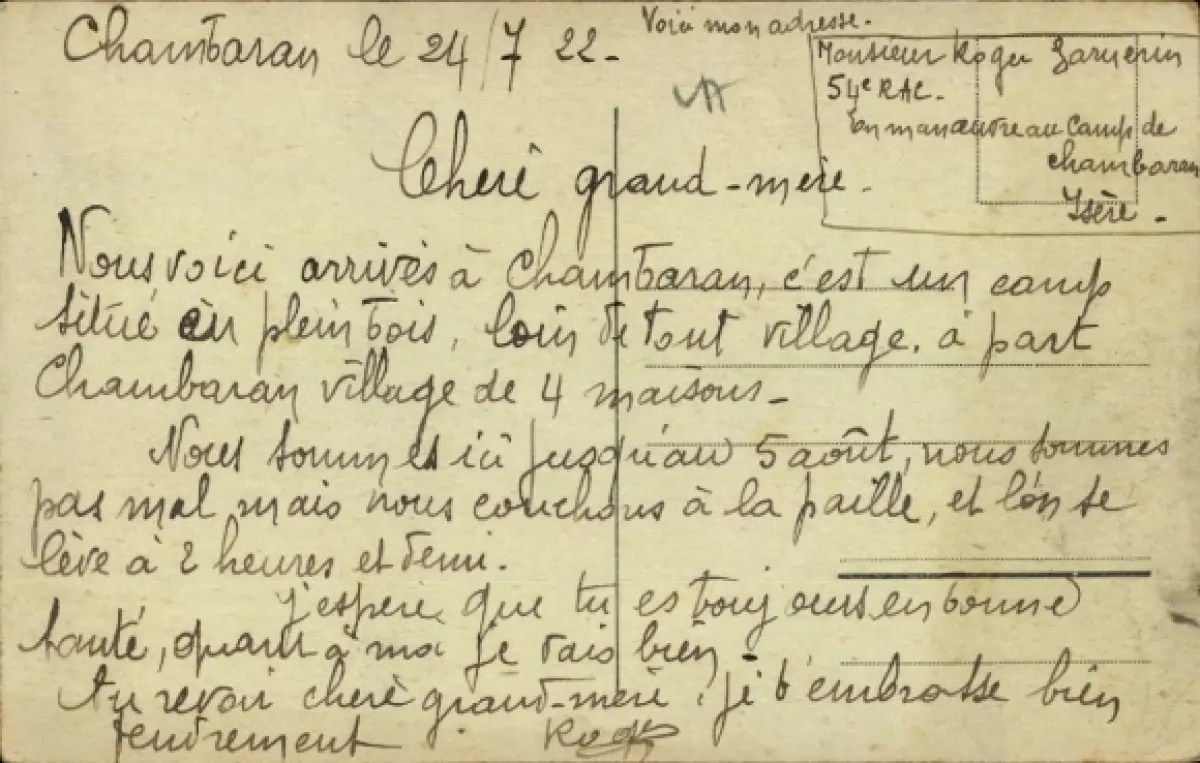 Chambaran le 24/7 22-
Voici mon adresse.
Monsieur Roger Garnerin
54e RAC.
En manœuvre au Camp de
chambaran
Isère -
Cherè grand-mère.
Nous voici arrivès à Chambaran, c'est un camp
situé en plein bois, loin de tout village, à part
Chambaran village de 4 maisons-
Nous sommes ici jusqu'au 5 août, nous sommes
pas mal mais nous couchons à la paille, et l'on se
lève à 2 heures et demi.
j'espère que tu es toujours en bonne
santé, quant à moi je vais bien -
Au revoir cherè grand-mère, je t'embrasse bien
tendrement Roger